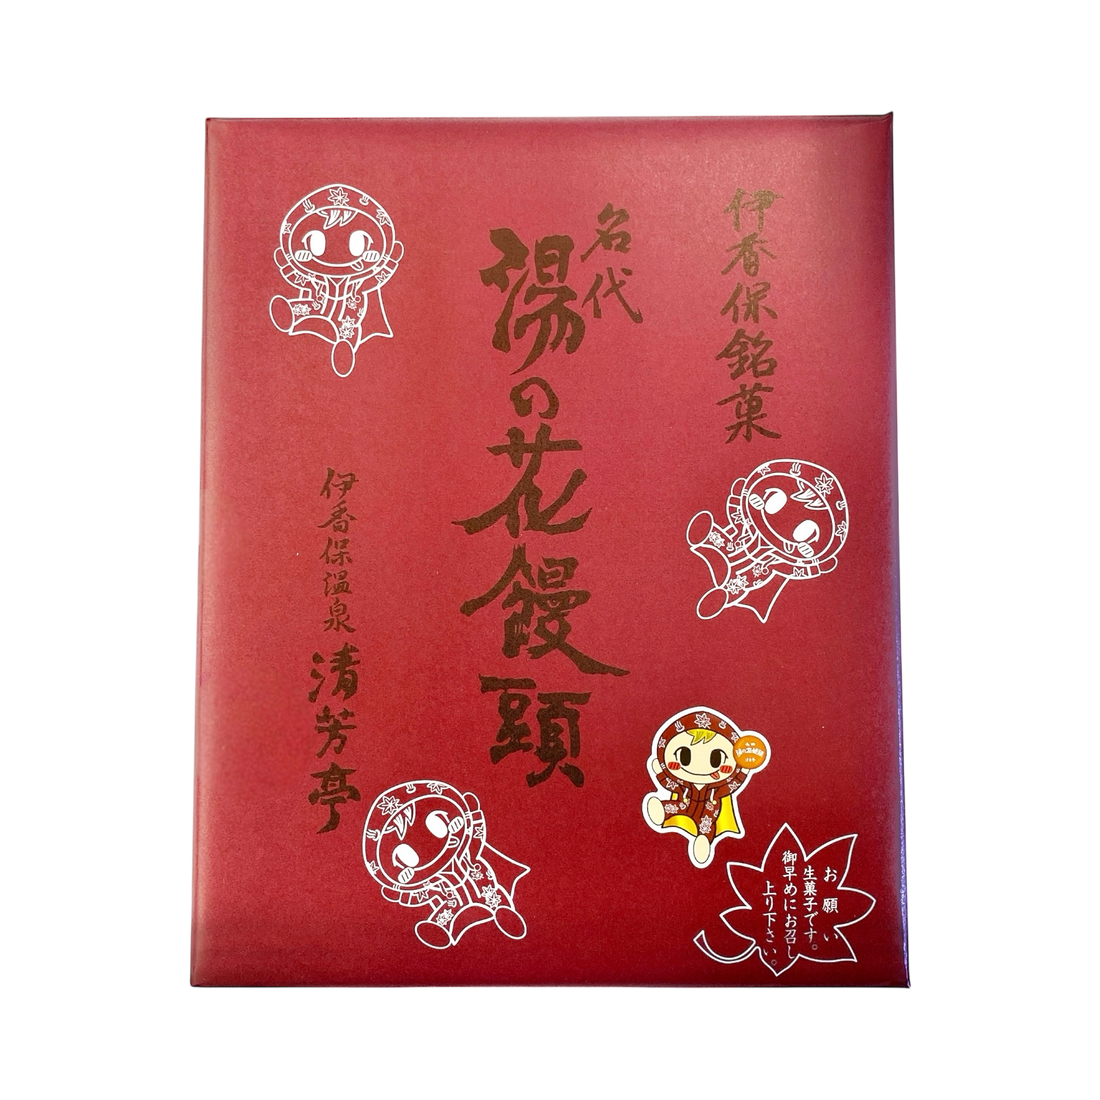 伊香保銘菓
名代
湯の花饅頭
伊香保温泉
清芳亭
お願い
生菓子です。
御早めにお召し
上り下さい。